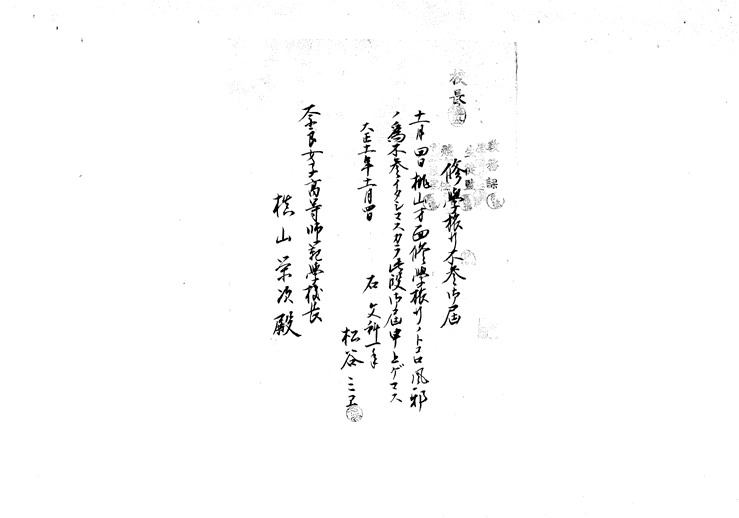 校長
教務課
修學旅行不参御届
十一月四日桃山方面修學旅行ノトコロ風邪
ノ為不参イタシマスカラ此段御届申上ゲマス
大正十一年十一月四日
右 文科一年
松谷
奈良女子高等師範學校長
槇山栄次殿